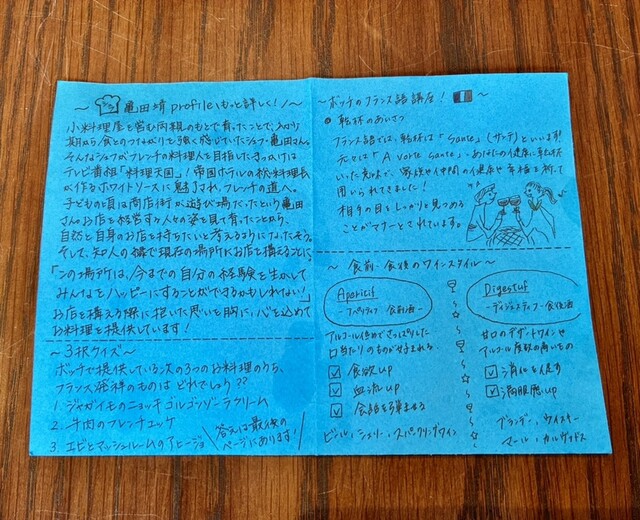 〜 亀田靖 profileもっと詳しく!ノ〜
小料理屋を営む両親のもとで育ったことで、幼少
期から食とのつながりを強く感じていたシェフ・亀田さん。
そんなシェフがフレンチの料理人を目指したきっかけは
テレビ番組「料理天国」!帝国ホテルの総料理長
が作るホワイトソースに魅了され、フレンチの道へ。
子どもの頃は商店街が遊び場だったという亀田
さん。お店を経営する人々の姿を見て育ったことから、
自然と自身のお店を持ちたいと考えるようになったそう。
そして、知人の縁で現在の場所にお店を構えることに。
「この場所は、今までの自分の経験を生かして
みんなをハッピーにすることができるかもしれない!」
お店を構える際に抱いた思いを胸に、心を込めて
お料理を提供しています!
〜3択クイズ〜
ボッチャ提供している次の3つのお料理のうち、
フランス発祥のものはどれでしょう??
1. ジャガイモのニョッキ ゴルゴンゾーラクリーム
2. 牛肉のフレンチュッケ
3. エビとマッシュルームのアヒージョ
答えは最後の
ページにあります!
〜ボッチのフランス語講座!〜
乾杯のあいさつ
フランス語では、乾杯は「Sante」(サンテ)といいます!
元々は「A votre Sante」-あなたの健康に乾杯
いった表現で、家族や仲間の健康や幸福を祈って
用いられてきました!
相手の目をしっかりと見つめる
ことがマナーとされています。
〜食前・食後のワインスタイル〜
Aperitif
-アペリティフ 食前酒-
アルコール低めでさっぱりした
口当たりのものが好まれる
食欲up
血流up
会話を弾ませる
ビール、シェリー、スパークリングワイン
Digestif
-ディジェスティフ 食後酒-
甘口のデザートワインや
アルコール度数の高いもの
消化を促す
満腹感up
ブランデー、ウイスキー
マール、カルヴァドス